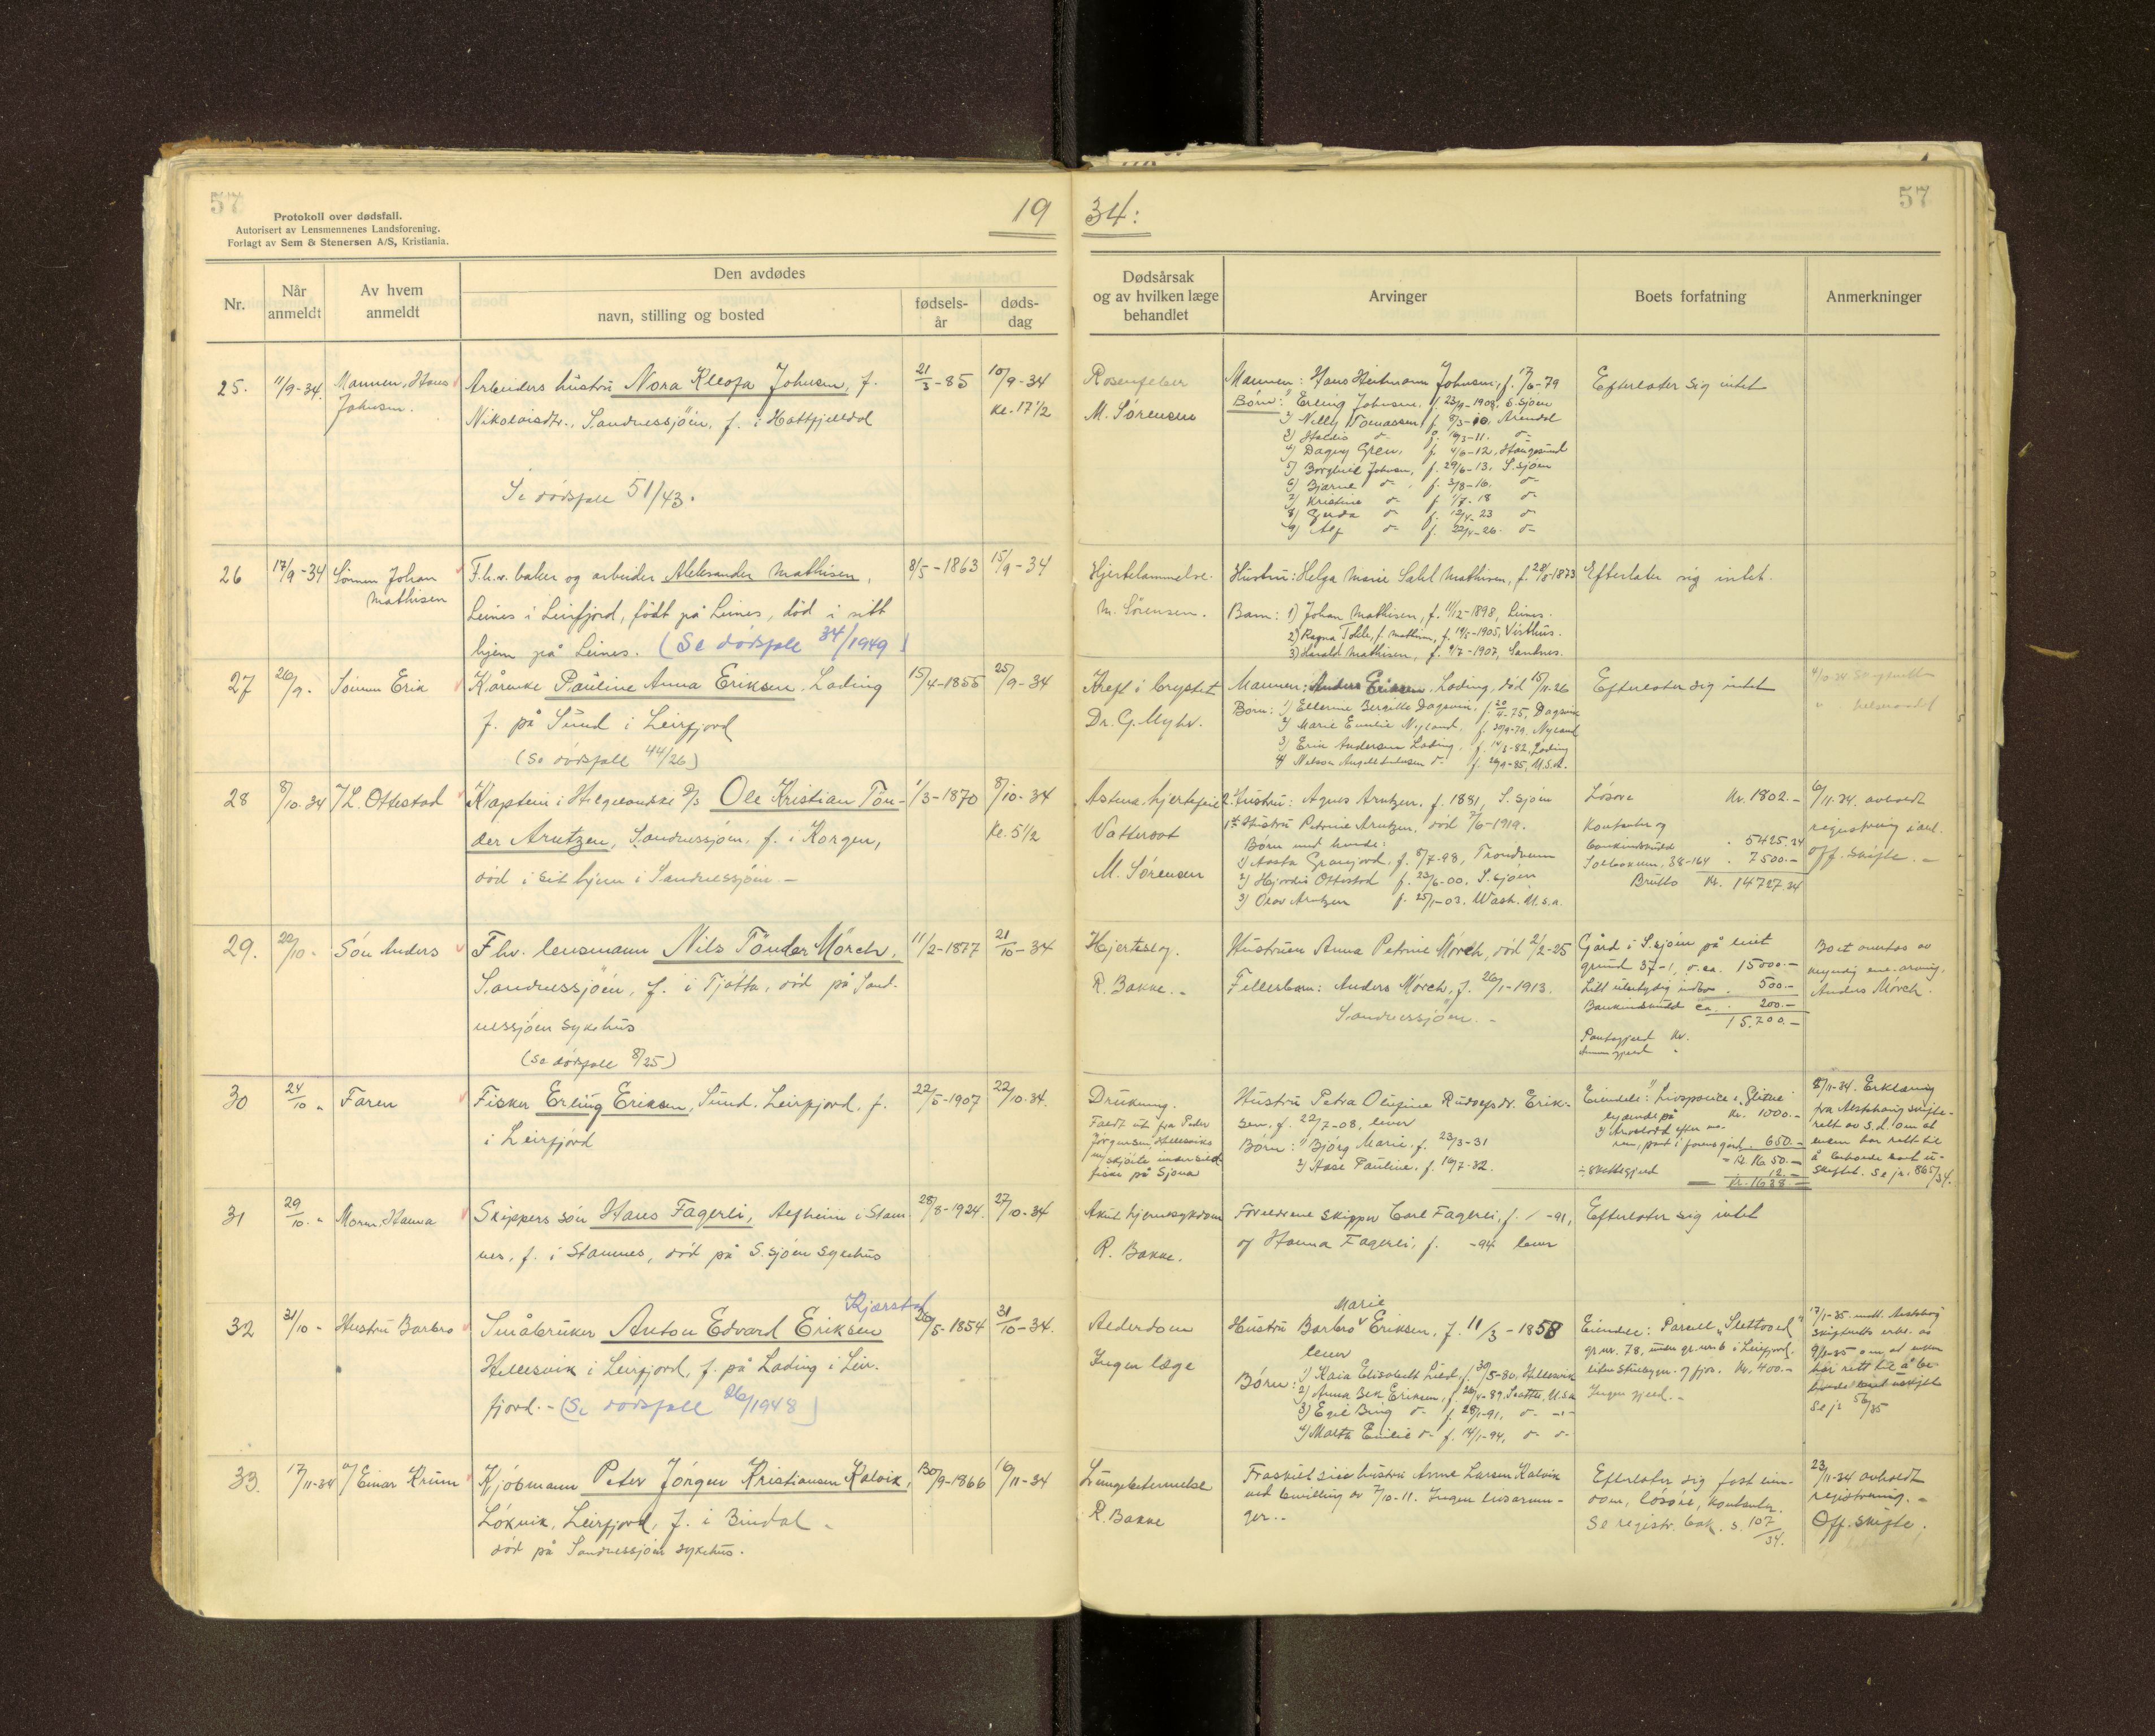 57
Protokoll over dødsfall.
Autorisert av Lensmennenes Landsforening.
Forlagt av Sem & Stenersen A/S, Kristiania.
19
34:
57
Nr.
Når anmeldt
Av hvem anmeldt
Den avdødes
navn, stilling og bosted
fødsels-år
døds-dag
Dødsårsak og av hvilken læge behandlet
Arvinger
Boets forfatning
Anmerkninger
25.
11/9-34.
Mannen, Hans
Johnsen.
Arbeiders hustru Nora Kleofa Johnsen, f.
Nikolaisdtr., Sandnessjöen, f. i Hattfjelldal
Se dödsfall 51/43.
21/3-85
10/9-34
Kl. 17 1/2
Rosenfeber
M. Sørensen
Mannen: Hans Johnsen, f. 17/6-79
Børn: 1) Erling Johnsen, f. 1908, S.sjöen
2) Nelly Tomassen, f. 8/3-10, Arendal
3) f. -11.
4) Dagny f. 4/6-12, Haugesund
5) Johnsen, f. 29/6-13, S.sjöen
6) Bjarne f. 3/8-16.
7) Kristine f. 1/7-18
8) Gerda f. 12/4-23
9) Alf f. 22/4-26
Efterlater sig intet
26
17/9-34
Sönnen Johan
Mathisen
F.h.v. baker og arbeider Aleksander Mathisen,
Leines i Leirfjord, födt på Leines, död i sitt
hjem på Leines. (Se dödsfall 34/1949)
8/5-1863
15/9-34
Hjertelammelse.
M. Sørensen.
Hustru: Helga Marie Mathisen, f. 28/8-1873
Barn: 1) Johan Mathisen, f. 11/12-1898, Leines.
2) Ragna f. Mathisen, f. 1905,
3) Harald Mathisen, f. 9/7-1907, Sandnes.
Efterlater sig intet.
27
26/9.
Sönnen Erik
Kårenke Pauline Anna Eriksen, Lading
f. på Sund i Leirfjord
(Se dödsfall 44/26)
15/4-1855
25/9-34
Kreft i brystet
Dr. G. Myhr.
Mannen: Anders Eriksen, Lading, död 15/11-26
Börn: 1) Ellerine Bergitte Dagsvik, f. 20/4-75, Dagsvik
2) Marie Emilie Nyland, f. 30/9-79, Nyland
3) Erik Andersen Lading, f. -82, Lading
4) Nelson f. -85, U.S.A.
Efterlater sig intet
28
8/10-34
L. Ottestad
Kaptein i Helgelandske D/S Ole Kristian Tön-
der Arntzen, Sandnessjöen, f. i Korgen,
död i sit hjem i Sandnessjöen.-
1/3-1870
8/10-34
Kl. 5 1/2
Astma, hjertefeil
Vattersot
M. Sørensen
2. Hustru: Agnes Arntzen, f. 1881, S.sjöen
1ste Hustru Petrine Arntzen, död 7/6-1919.
Börn med henne:
1) Aasta f. 8/7-98, Trondheim
2) Hjördis Ottestad f. 23/6-00. S.sjöen
3) Olav Arntzen f. 25/1-03. Wash. U.S.A.
Lösöre Kr. 1802.-
Kontanter og
bankinnskudd 5425.34
38-164 7500.-
Brutto Kr. 14727.34
6/11-34. avholdt
registrering
off. skifte.-
29.
22/10.
Sön Anders
F.hv. lensmann Nils Tönder Mörch,
Sandnessjöen, f. i Tjötta, död på Sand-
nessjöen sykehus
(Se dödsfall 8/25)
11/2-1877
21/10-34
Hjerteslag.
R. Bakke.-
Hustruen Anna Petrine Mörch, död 2/2-25
Fellesbarn: Anders Mörch, f. 26/1-1913.
Sandnessjöen.-
Gård i S.sjöen på leiet
grund 37-1, v. ca. 15000.-
Litt ubetydelig indbo 500.-
Bankinnskudd ca. 200.-
15.700.-
Pantegjeld Kr.
Boet overtas av
myndig ene-arving,
Anders Mörch.
30
24/10
Faren
Fisker Erling Eriksen, Sund. Leirfjord, f.
i Leirfjord
22/5-1907
22/10.34.
Drukning.
Faldt ut fra Peder
Jörgensen
m/sköite under sild-
fiske på Sjona
Hustru Petra Olufine Erik-
sen, f. 22/7-08, lever
Börn: 1) Bjørg Marie, f. 23/3-31
2) Aase Pauline, f. 16/7-32.
Eiendele: 1) Livspolice i "Glitne"
lydende på Kr. 1000.-
2) Arvelodd efter mo-
ren, pant i farens gård. 650.-
Kr. 1650.-
÷ skattegjeld 12.-
Kr. 1638.-
8/11-34. Erklæring
fra Alstahaug skifte-
rett av s.d. om at
enken har rett til
å beholde boet u-
skiftet. Se jr. 865/34.
31
29/10.
Moren, Hanna
Skippers sön Hans Fagerli, Alfheim i Stam
nes, f. i Stamnes, död på S.sjöen sykehus
28/8-1924.
27/10-34
Akut hjernesykdom
R. Bakke.
Foreldrene skipper Carl Fagerli, f. -91,
og Hanna Fagerli, f. -94 lever
Efterlater sig intet
32
31/10
Hustru Barbro
Småbruker Anton Edvard Eriksen
Kjærstad
Hellesvik i Leirfjord, f. på Lading i Leir-
fjord.- (Se dödsfall 26/1948)
26/5-1854
31/10-34.
Alderdom
Ingen læge
Hustru Barbro Marie Eriksen, f. 11/3-1858
lever
Börn: 1) Kaia Elisabeth Lied, f. 30/5-80, Hellesvik
2) Anna Eriksen, f. -89, Seattle, U.S.A.
3) f. 28/1-91,
4) Marta Emilie f. 14/1-94,
Eiendele: Parsell "Slettvoll"
gr.nr. 78, under gr.nr. 6 i Leirfjord.
og fjøs. Kr. 400.-
Ingen gjeld.-
17/1-35. mott. Alstahaug
skifteretts erkl. av
9/1-35 om, at enken
har rett til å be-
holde boet uskiftet
Se jr. 56/35
33.
17/11-34
Einar Krum
Kjöbmann Peter Jörgen Kristiansen Kalvik,
Löknik, Leirfjord, f. i Bindal.
död på Sandnessjöen sykehus.
30/9-1866
16/11-34
Lungebetennelse
R. Bakke
Fraskilt sin hustru Anne Larsen Kalvik
ved bevilling av 7/10-11. Ingen livsarvin-
ger.-
Efterlater sig fast eien-
dom, lösöre, kontanter.
Se registr. bok. s. 107/34.
23/11-34 avholdt
registrering.-
Off. skifte.